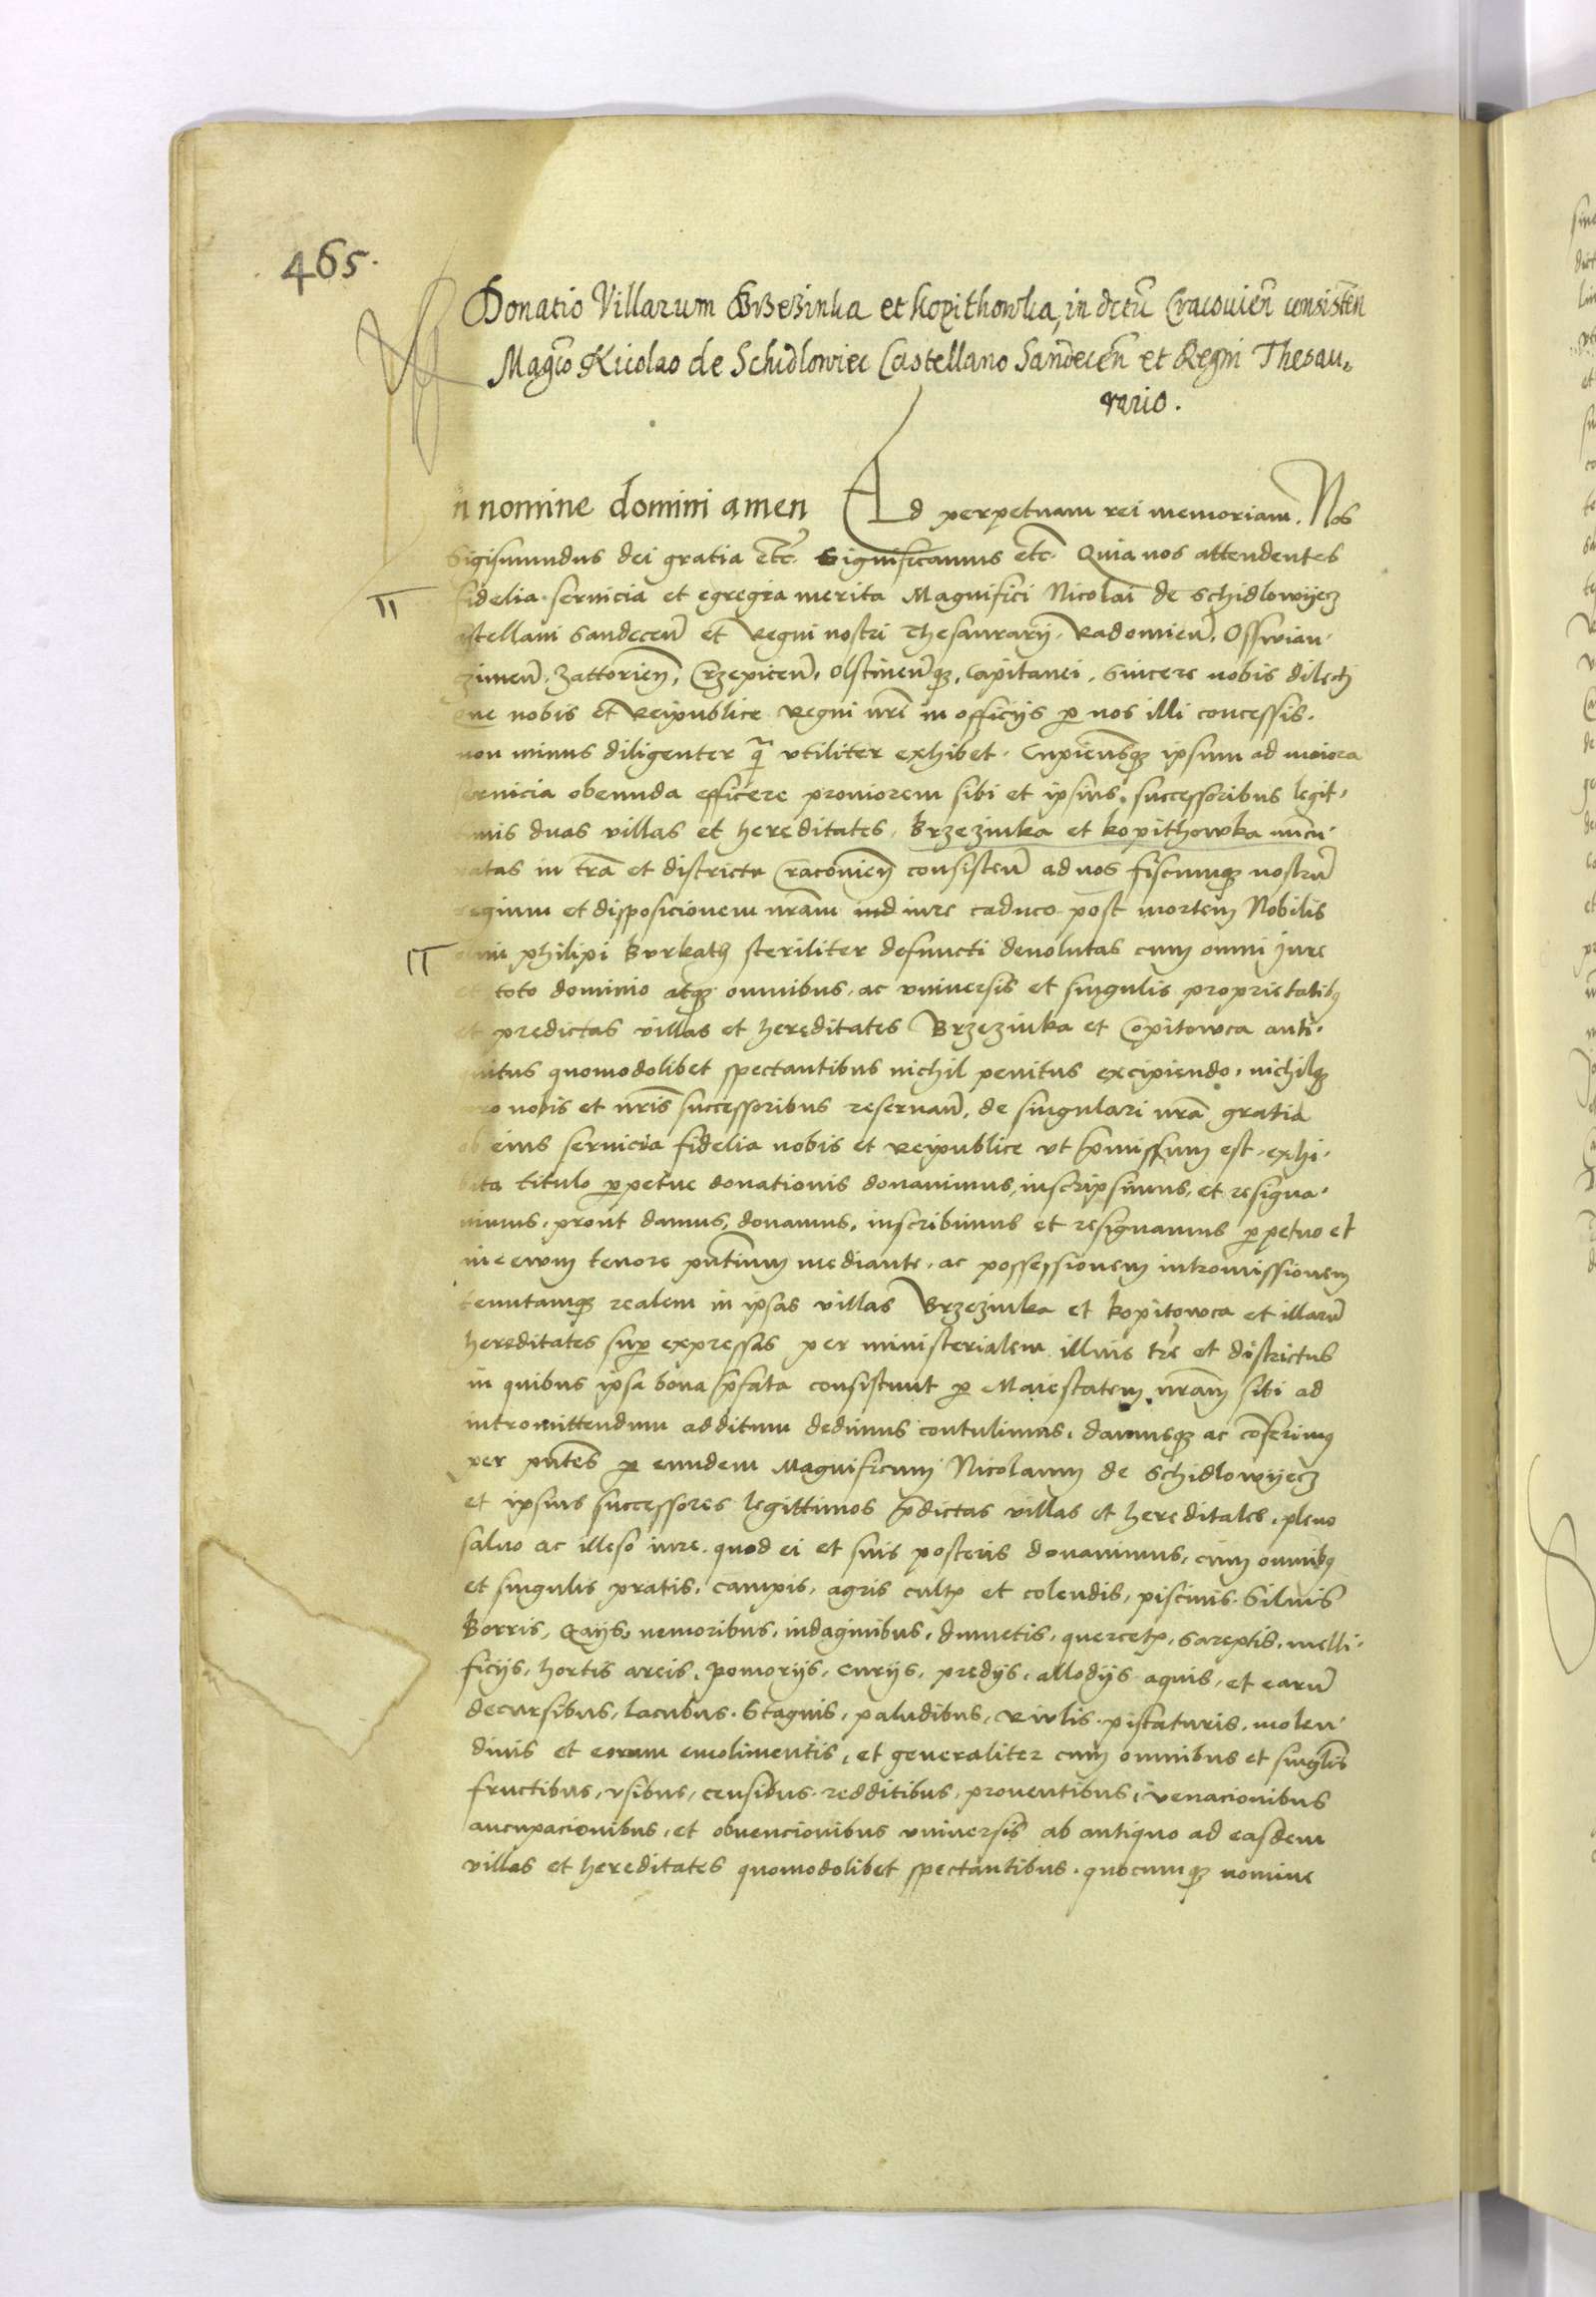 465.
Donatio Villarum Brzezinka et Kopithowka, in dctũ Cracouień consisteñ
Magco Nicolao de Schidlowiec Castellano Sandeceñ et Regni Thesau„
rario.
n nomine domini amen Ad perpetuam rei memoriam. Nos
Sigismundus dei gratia etc. Significamus etc. Quia nos attendentes
fidelia seruicia et egregia merita Magnifici Nicolai de Schidlowyecz
astellani Sandeceñ et Regni nostri Thesaurarij. Radomieñ. Osswian
czimeñ. Zattorieñ, Crzepiceñ. Olstineñqz. Capitanei. Sincere nobis dilecti
que nobis et Reipublice Regni nrĩ in officijs p nos illi concessis.
non minus diligenter q̃ vtiliter exhibet. Cupiensqz ipsum ad maiora
seruicia obeunda efficere proniorem sibi et ipsius. successoribus legit„
timis duas villas et hereditates, Brzezinka et kopithowka nũcu„
patas in trã et districtu Cracouieñ consisteñ ad nos fiscumqz nostrũ
regium et disposicionem nrãm iure caduco post mortem Nobilis
olim philipi Burkath steriliter defuncti deuolutas cum omni Jure
et toto dominio atqz omnibus. ac vniuersis et singulis proprietatibq
et predictas villas et hereditates Brzezinka et Copitowca anti„
quitus quomodolibet spectantibus nichil penitus excipiendo. nichilqz
pro nobis et nrĩs successoribus reseruañ. de singulari nrã gratia
ob eius seruicia fidelia nobis et Reipublice vt p̃missum est. exhi„
bita titulo ppetue donationis donauimus, inscripsimus, et resigna„
uimus. prout damus, donamus. inscribimus et resignamus ppetuo et
in eeum tenore pñtium mediante. ac possessionem intromissionem
tenutamqz realem in ipsas villas Brzezinka et kopitowca et illarũ
hereditates sup expressas per ministerialem illius trẽ et districtus
in quibus ipsa bona p̃fata consistunt p Maiestatem nrãm sibi ad
intromittendum additum dedimus contulimus. damusqz ac cõferimq
per pñtes p eundem Magnificum Nicolaum de Schidlowyecz
et ipsius successores legittimos p̃dictas villas et hereditates. pleno
saluo ac illeso iure. quod ei et suis posteris donauimus, cum omnibq
et singulis pratis. campis. agris cultꝭ et colendis, piscinis. Siluis
Borris, Gaijs, nemoribus. indaginibus. dumetis. quercetꝭ. sareptis. melli„
ficijs. hortis areis. Pomorijs. curijs. predijs. allodijs aquis. et earũ
decursibus, lacubus. Stagnis, paludibus, Riulis. piscaturis. molen„
dinis et eorum emolimentis, et generaliter cum omnibus et singlis
fructibus, vsibus, censibus. redditibus. prouentibus, venacionibus
aucupacionibus. et obuencionibus vniuersis ab antiquo ad easdem
villas et hereditates quomodolibet spectantibus. quocumqz nomine